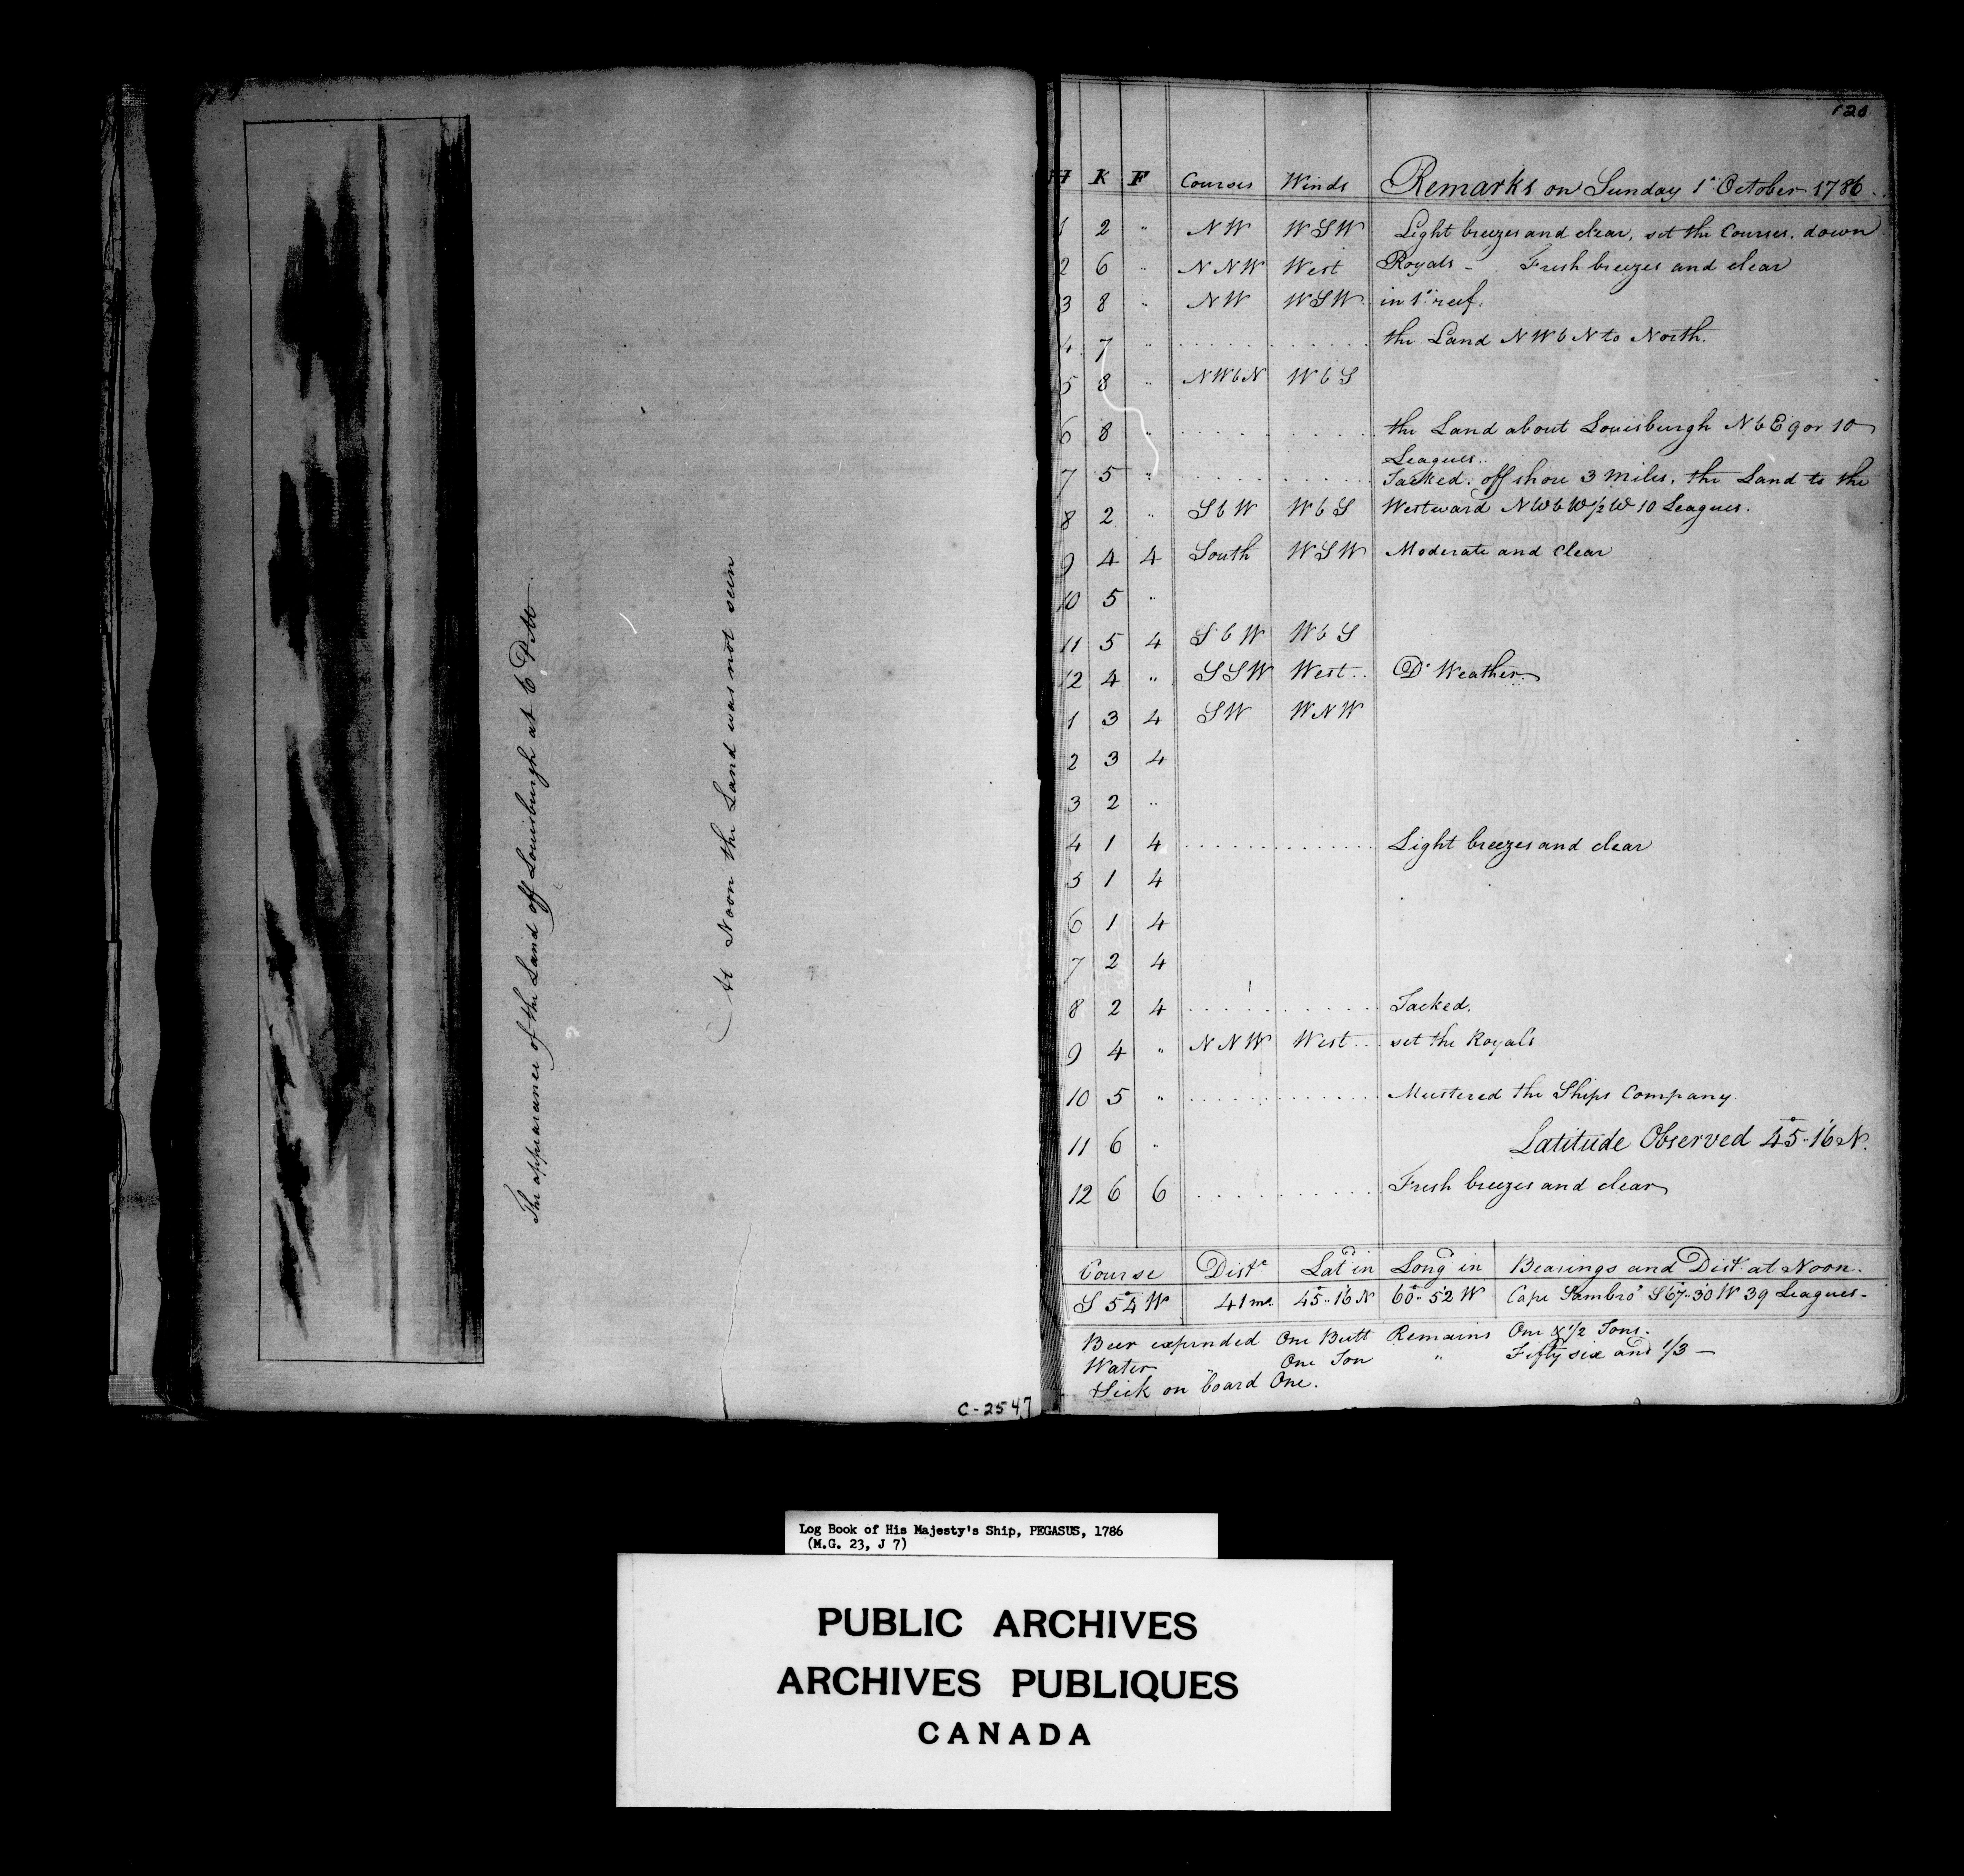 The appearance of the Land off Louisburgh at 6 P.M.
At Noon the Land was not seen
C-2547
120
H K F Courses Winds Remarks on Sunday 1st October 1786
1 2 " NW WSW Light breezes and clear, set the Courses. down
2 6 " NNW West Royals - Fresh breezes and clear
3 8 " NW WSW in 1st reef.
4 7 " the Land NWbN to North.
5 8 " NWbN WbS
6 8 " the Land about Louisburgh NbE 9 or 10
Leagues..
7 5 " Tacked. off shore 3 miles. the Land to the
8 2 " SbW WbS Westward NWbW1/2W 10 Leagues.
9 4 4 South WSW Moderate and Clear
10 5 "
11 5 4 SbW WbS
12 4 " SSW West.. Do Weather
1 3 4 SW WNW
2 3 4
3 2 "
4 1 4 Light breezes and clear
5 1 4
6 1 4
7 2 4
8 2 4 Tacked.
9 4 " NNW West... set the Royals
10 5 " Mustered the Ships Company
11 6 " Latitude Observed 45°..16' N.
12 6 6 Fresh breezes and clear
Course Distce Latd in Longd in Bearings and Dist at Noon.
S 54° W 41 ms. 45°..16' N 60°..52' W Cape Sambro' S 67°..30' W 39 Leagues-
Beer expended One Butt Remains One & 1/2 Tons.
Water " One Ton " Fifty six and 1/3 -
Sick on board One.
Log Book of His Majesty's Ship, PEGASUS, 1786
(M.G. 23, J 7)
PUBLIC ARCHIVES
ARCHIVES PUBLIQUES
CANADA